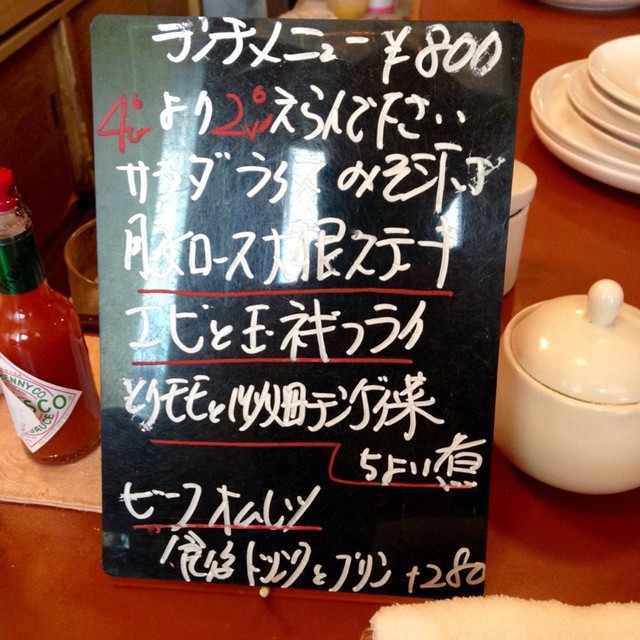 ランチメニュー ¥800
4品より2品えらんで下さい
サラダ ライス みそ汁付
豚ロース大根ステーキ
エビと玉ネギフライ
とりモモと小畑チンゲン菜
ちょい煮
ビーフオムレツ
ドリンクとプリン +280
SCO
SAUCE